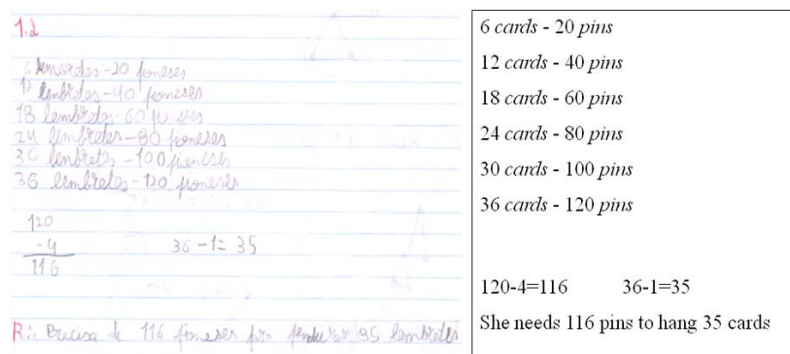 1.2
6 lembretes - 20 pioneses
12 lembretes - 40 pioneses
18 lembretes - 60 pioneses
24 lembretes - 80 pioneses
30 lembretes - 100 pioneses
36 lembretes - 120 pioneses
120
-4
116
36-1= 35
R: Precisa de 116 pioneses pra pendurar 35 lembretes
6 cards - 20 pins
12 cards - 40 pins
18 cards - 60 pins
24 cards - 80 pins
30 cards - 100 pins
36 cards - 120 pins
120-4=116 36-1=35
She needs 116 pins to hang 35 cards